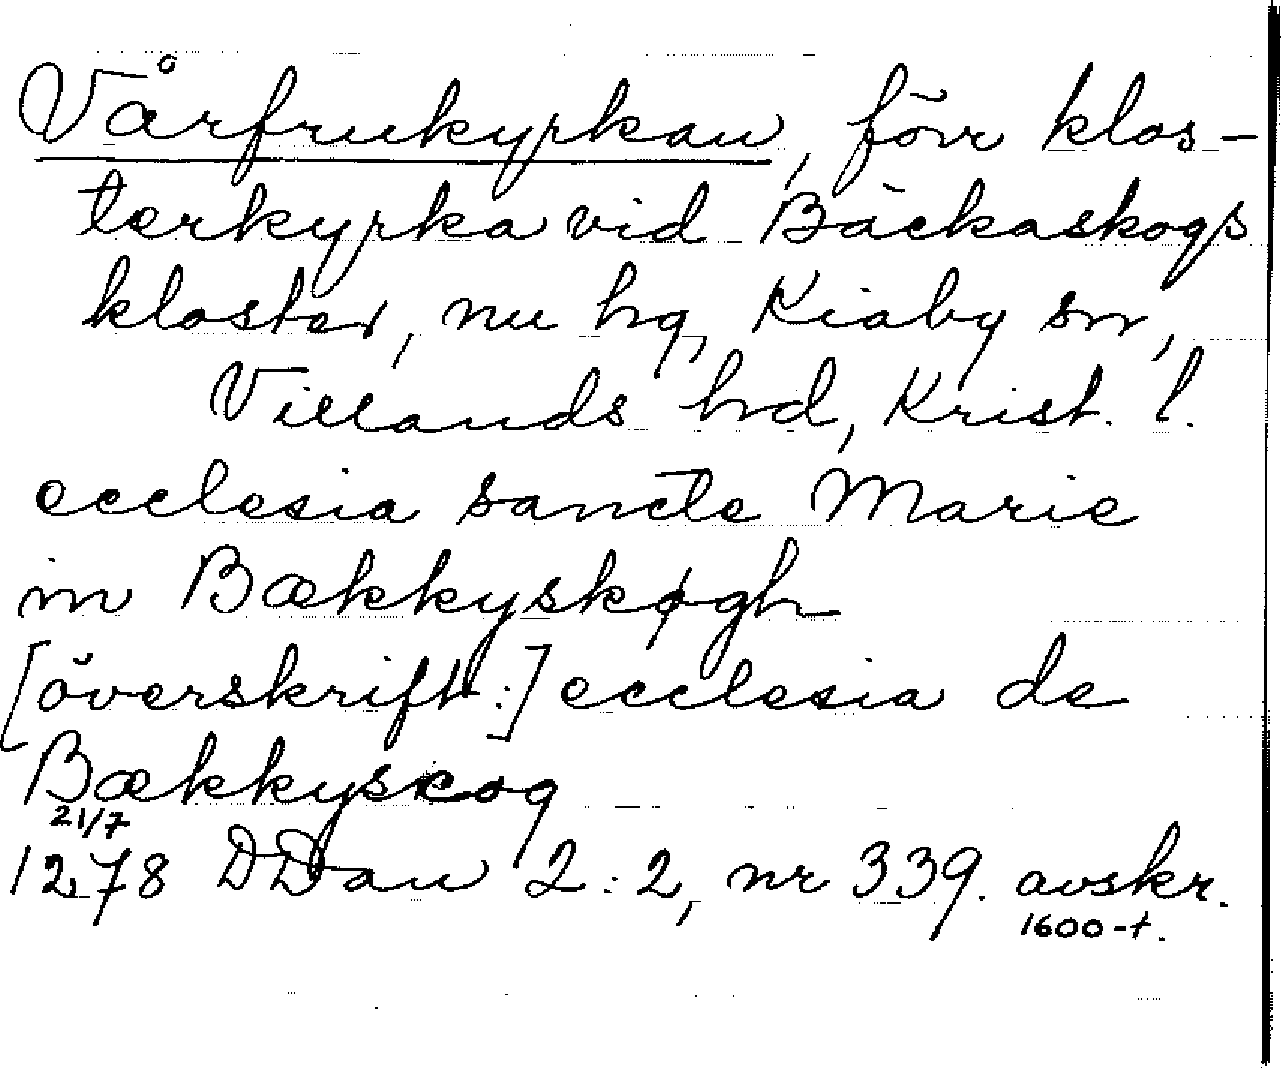 Vårfrukyrkan, förr klos-
terkyrka vid Bäckaskogs
kloster, nu hg, Kiaby sn,
Villands hd, Krist. l.
ecclesia sancte Marie
in Bækkyskøgh
[överskrift:] ecclesia de
Bækkyscog
21/7
1278 DDan 2:2, nr 339. avskr.
1600-t.